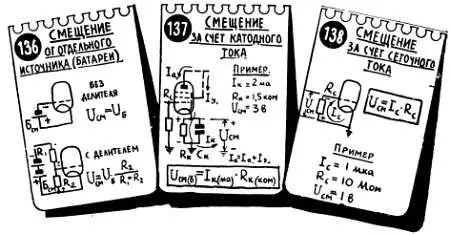 136
СМЕЩЕНИЕ
ОТ ОТДЕЛЬНОГО
ИСТОЧНИКА (БАТАРЕИ)
БЕЗ
ДЕЛИТЕЛЯ
Бсм
Uсм=Uб
С ДЕЛИТЕЛЕМ
R1
Бсм
R2
Uсм=Uб R2/(R1+R2)
137
СМЕЩЕНИЕ
ЗА СЧЕТ КАТОДНОГО
ТОКА
ПРИМЕР.
Iк = 2 ма
Rк = 1,5 ком
Uсм = 3 В
Iа
Iэ
Rс
Uсм
Iк
Rк Cк
Iк=Iа+Iэ
Uсм(в)=Iк(ма)·Rк(ком)
138
СМЕЩЕНИЕ
ЗА СЧЕТ СЕТОЧНОГО
ТОКА
Rс
Uсм
Iс
Uсм=Iс·Rс
ПРИМЕР
Iс = 1 мка
Rс = 10 Мом
Uсм = 1 В